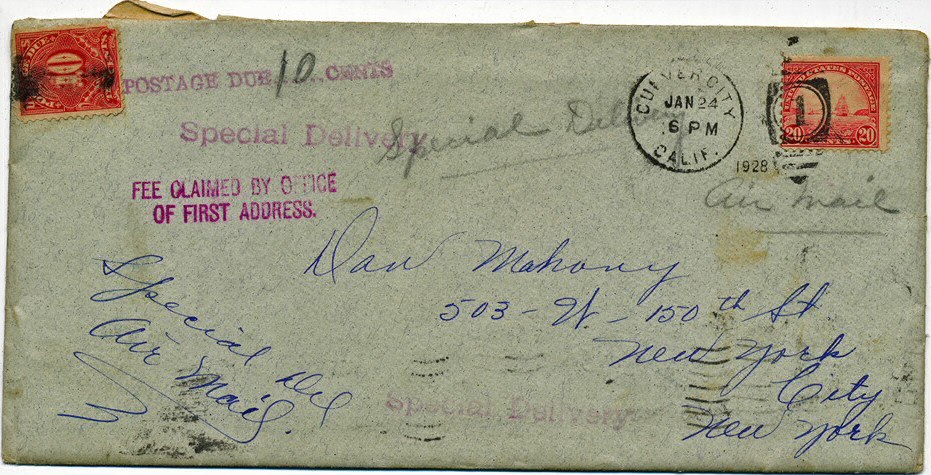 POSTAGE DUE 10 CENTS
Special Delivery
Special Delivery
FEE CLAIMED BY OFFICE
OF FIRST ADDRESS.
CULVER CITY
JAN 24
6 PM
1928
CALIF.
1
UNITED STATES POSTAGE
20 CENTS 20
Air Mail
Dan Mahony
503 - W. - 150th St
New York
City
New York
Special Del
Air Mail.
Special Delivery